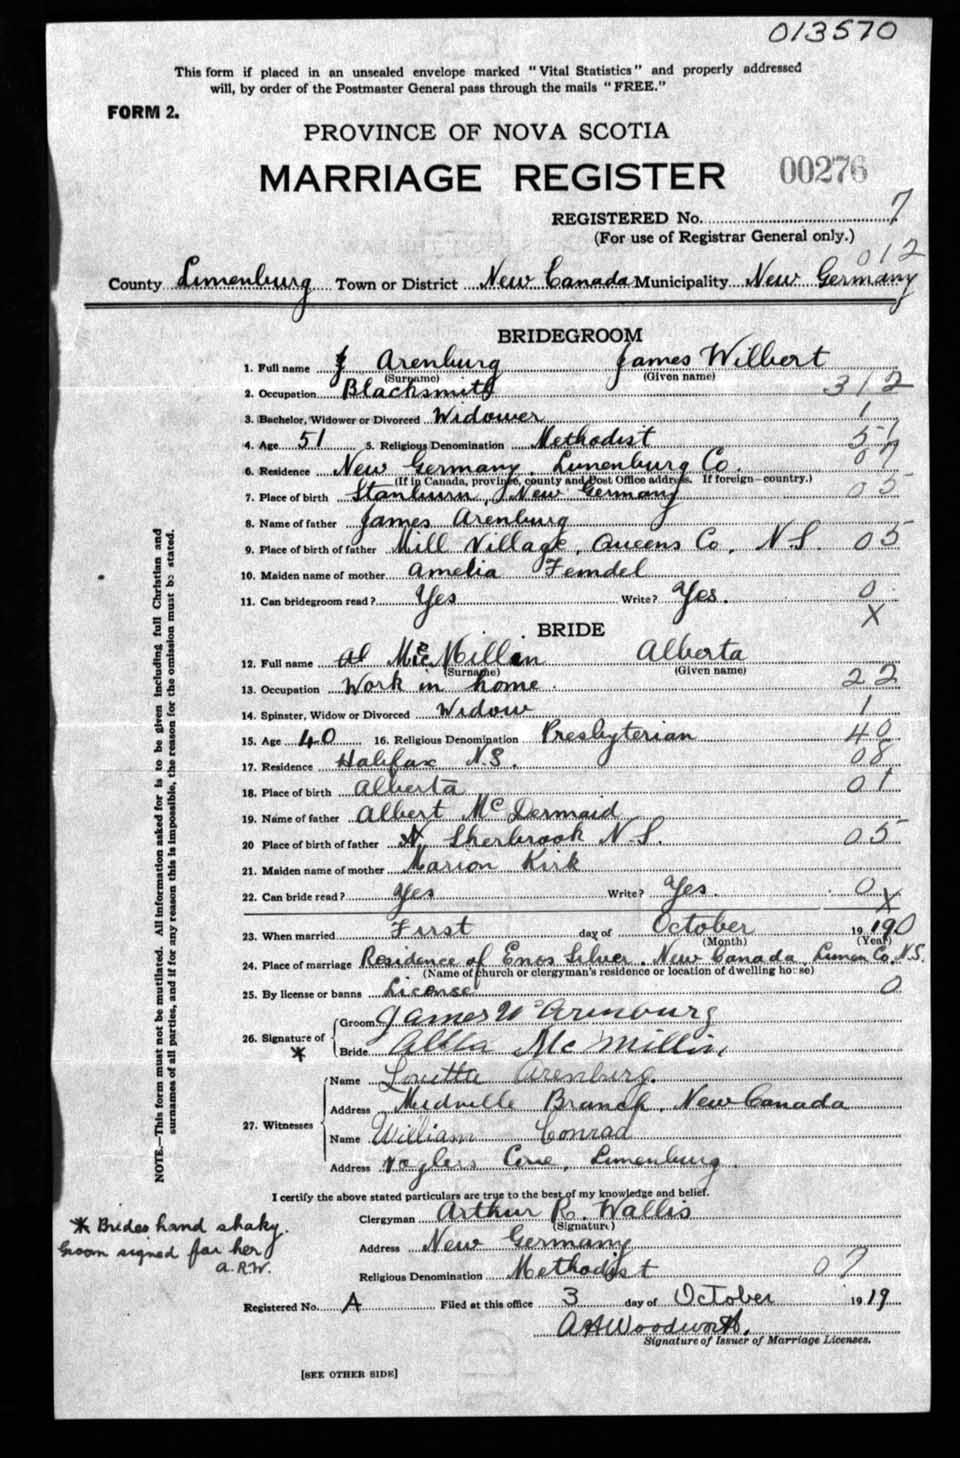 013570
This form if placed in an unsealed envelope marked "Vital Statistics" and properly addressed
will, by order of the Postmaster General pass through the mails "FREE."
FORM 2.
PROVINCE OF NOVA SCOTIA
MARRIAGE REGISTER 00276
REGISTERED No. 7
(For use of Registrar General only.)
012
County Lunenburg Town or District New Canada Municipality New Germany
BRIDEGROOM
1. Full name Arenburg James Wilbert
(Surname) (Given name)
2. Occupation Blacksmith 312
3. Bachelor, Widower or Divorced Widower 1
4. Age 51 5. Religious Denomination Methodist 51
6. Residence New Germany, Lunenburg Co. 07
(If in Canada, province, county and Post Office address. If foreign—country.)
7. Place of birth Stanburn, New Germany 05
8. Name of father James Arenburg
9. Place of birth of father Mill Village, Queens Co, N.S. 05
10. Maiden name of mother Amelia Femdel
11. Can bridegroom read? Yes Write? Yes. 0
X
BRIDE
12. Full name McMillan Alberta
(Surname) (Given name)
13. Occupation Work in home. 22
14. Spinster, Widow or Divorced Widow 1
15. Age 40 16. Religious Denomination Presbyterian 40
17. Residence Halifax N.S. 08
18. Place of birth Alberta 01
19. Name of father Albert McDermaid
20 Place of birth of father Sherbrook N.S. 05
21. Maiden name of mother Marion Kirk
22. Can bride read? Yes Write? Yes. 0
X
23. When married First day of October 19 19 0
(Month) (Year)
24. Place of marriage Residence of Enos Silver. New Canada, Lunen Co. N.S.
(Name of church or clergyman's residence or location of dwelling house)
25. By license or banns License 0
26. Signature of Groom James W Arenburg
* Bride McMillin
27. Witnesses
Name Loretta Arenburg.
Address Midville Branch, New Canada
Name William Conrad
Address Voglers Cove, Lunenburg.
I certify the above stated particulars are true to the best of my knowledge and belief.
Clergyman Arthur R. Wallis
(Signature)
Address New Germany
Religious Denomination Methodist 07
Registered No. A Filed at this office 3 day of October 19 19
A H Woodworth,
Signature of Issuer of Marriage Licenses.
[SEE OTHER SIDE]
NOTE.—This form must not be mutilated. All information asked for is to be given including full Christian and
surnames of all parties, and if for any reason this is impossible, the reason for the omission must be stated.
* Brides hand shaky.
Groom signed for her
A.R.W.